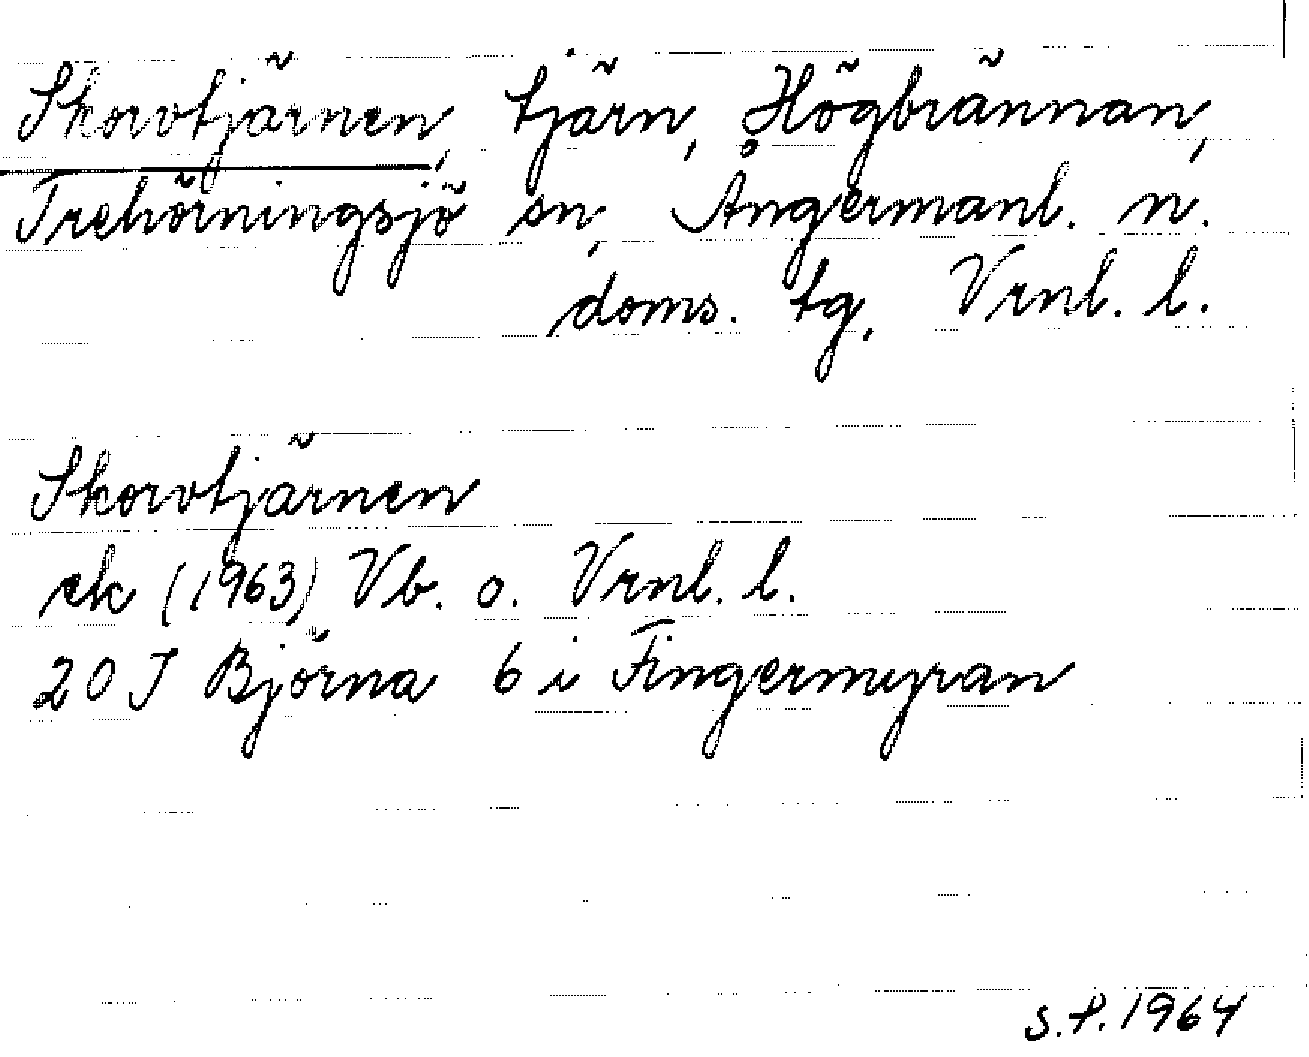 Skorvtjärnen, tjärn, Högbrännan,
Trehörningsjö sn, Ångermanl. n.
doms. tg, Vrnl. l.
Skorvtjärnen
ek (1963) Vb. o. Vrnl. l.
20 J Björna 6 i Fingermyran
S.P. 1964